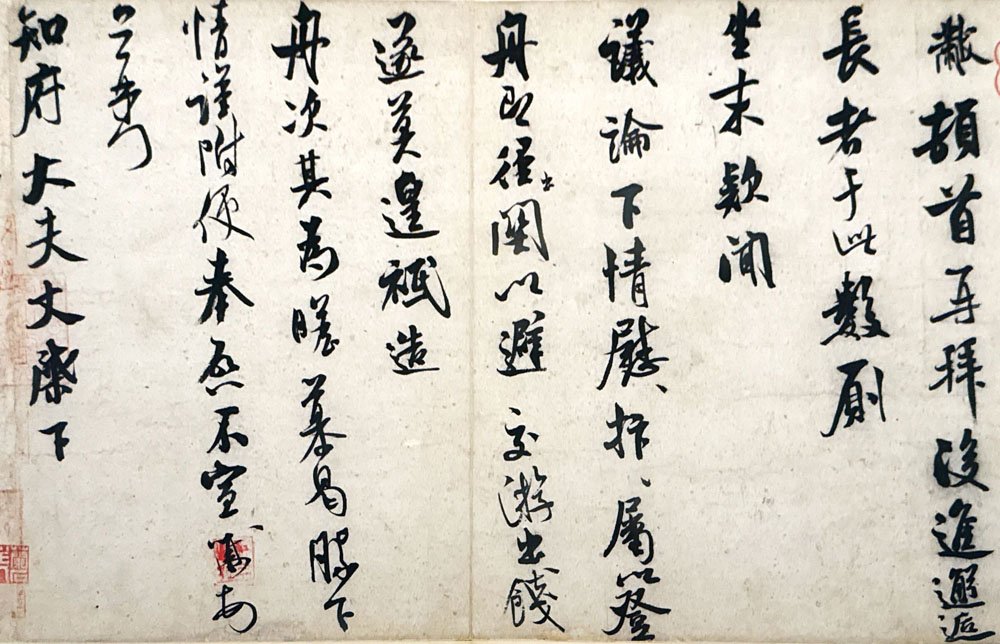 黻頓首再拜後進邂逅
長者于此數厠
坐末款聞
議論下情慰、抃、屬以登
舟即徑出關以避交游出餞
遂莫遑祗造
舟次其為瞻慕曷勝下
情謹附便奉啓不宣
知府大夫丈棐下